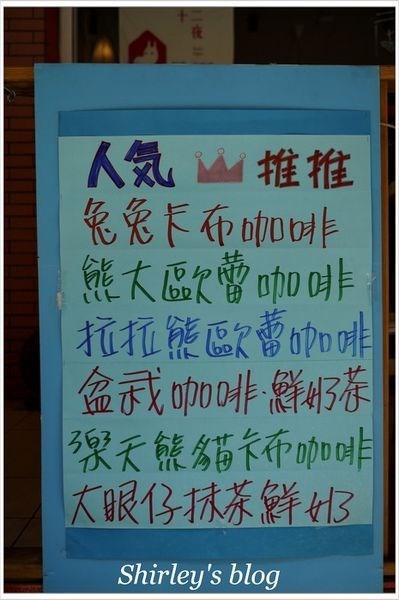 十二夜
人気 推推
兔兔卡布咖啡
熊大歐蕾咖啡
拉拉熊歐蕾咖啡
盆栽咖啡.鮮奶茶
樂天熊貓卡布咖啡
大眼仔抹茶鮮奶
Shirley's blog